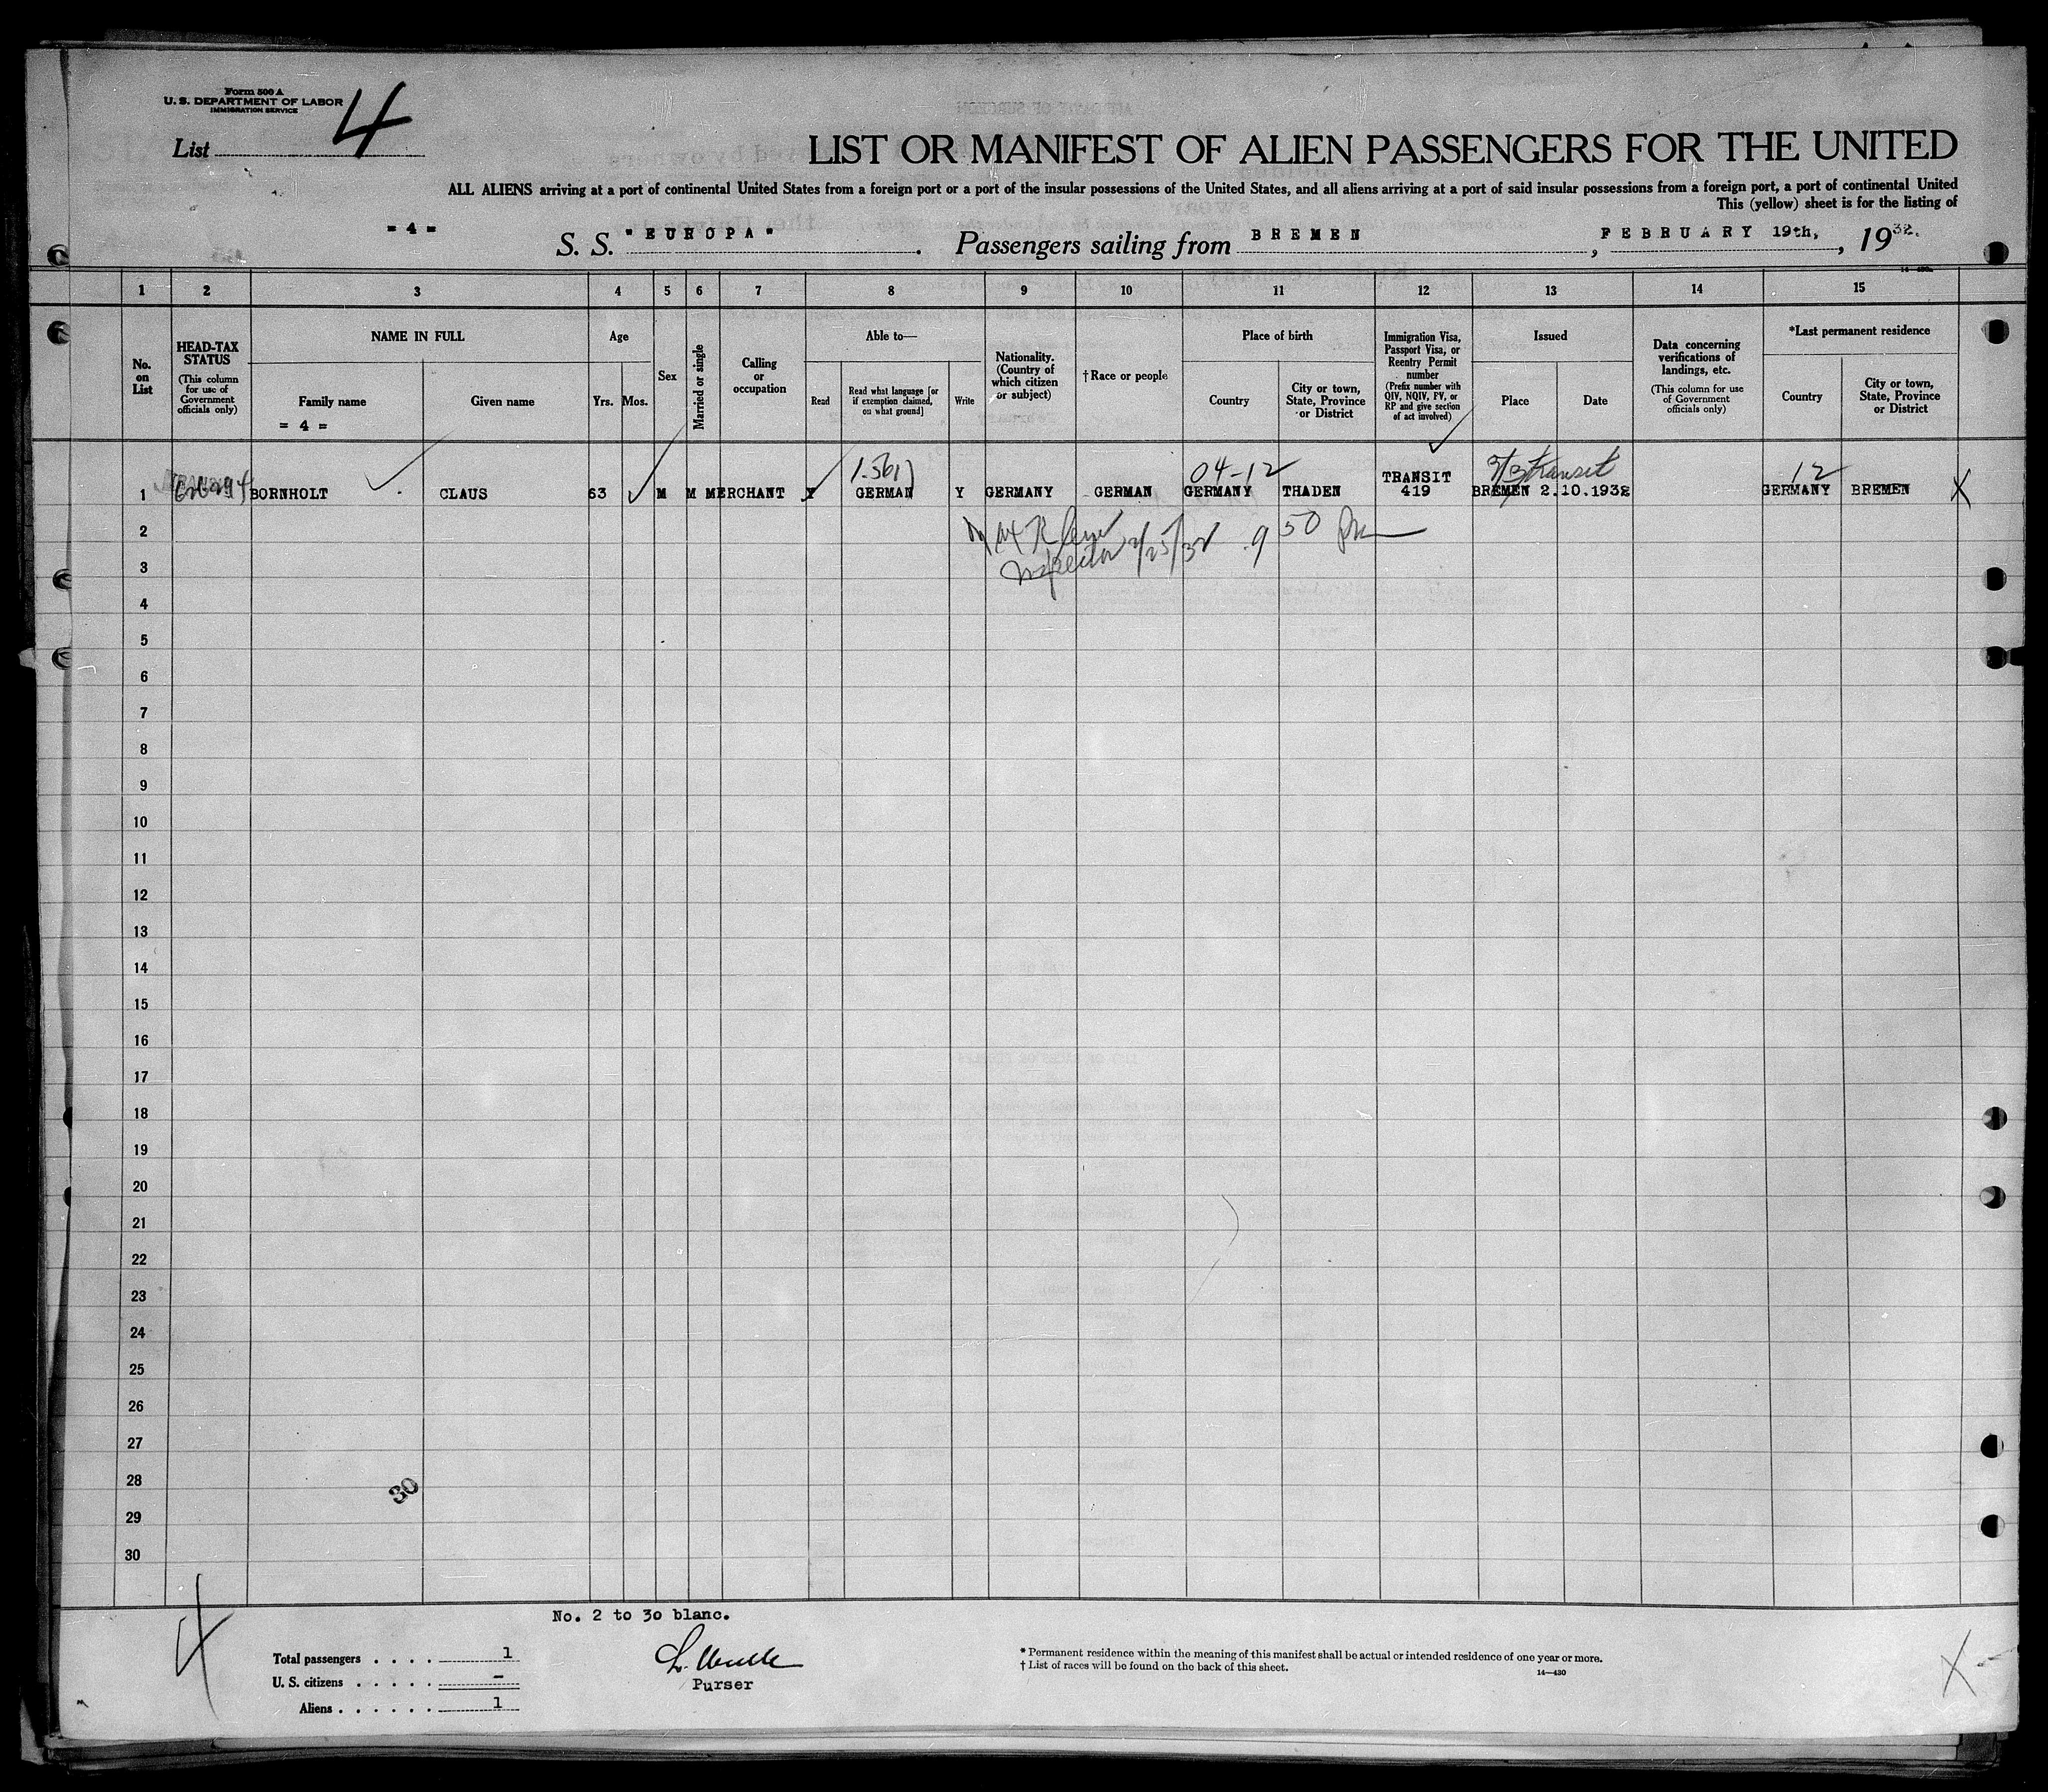 Form 500 A
U. S. DEPARTMENT OF LABOR
IMMIGRATION SERVICE
List 4
LIST OR MANIFEST OF ALIEN PASSENGERS FOR THE UNITED
ALL ALIENS arriving at a port of continental United States from a foreign port or a port of the insular possessions of the United States, and all aliens arriving at a port of said insular possessions from a foreign port, a port of continental United
This (yellow) sheet is for the listing of
= 4 =
S. S. "EUROPA". Passengers sailing from BREMEN, FEBRUARY 19th, 1932.
14-430
1 2 3 4 5 6 7 8 9 10 11 12 13 14 15
No. on List
HEAD-TAX STATUS
(This column for use of Government officials only)
NAME IN FULL
Family name
Given name
= 4 =
Age
Yrs. Mos.
Sex
Married or single
Calling or occupation
Able to—
Read
Read what language [or if exemption claimed, on what ground]
Write
Nationality. (Country of which citizen or subject)
†Race or people
Place of birth
Country
City or town, State, Province or District
Immigration Visa, Passport Visa, or Reentry Permit number
(Prefix number with QIV, NQIV, PV, or RP and give section of act involved)
Issued
Place
Date
Data concerning verifications of landings, etc.
(This column for use of Government officials only)
*Last permanent residence
Country
City or town, State, Province or District
04-12 TRANSIT transit 12
1 BORNHOLT CLAUS 63 M M MERCHANT Y GERMAN Y GERMANY GERMAN GERMANY THADEN 419 BREMEN 2.10.1932 GERMANY BREMEN X
2
Inspector 2/25/32 9 50 pm
3
4
5
6
7
8
9
10
11
12
13
14
15
16
17
18
19
20
21
22
23
24
25
26
27
28
30
29
30
No. 2 to 30 blanc.
4
Total passengers . . . . 1
U. S. citizens . . . . . —
Aliens . . . . . . 1
Purser
* Permanent residence within the meaning of this manifest shall be actual or intended residence of one year or more.
† List of races will be found on the back of this sheet.
14—430
X